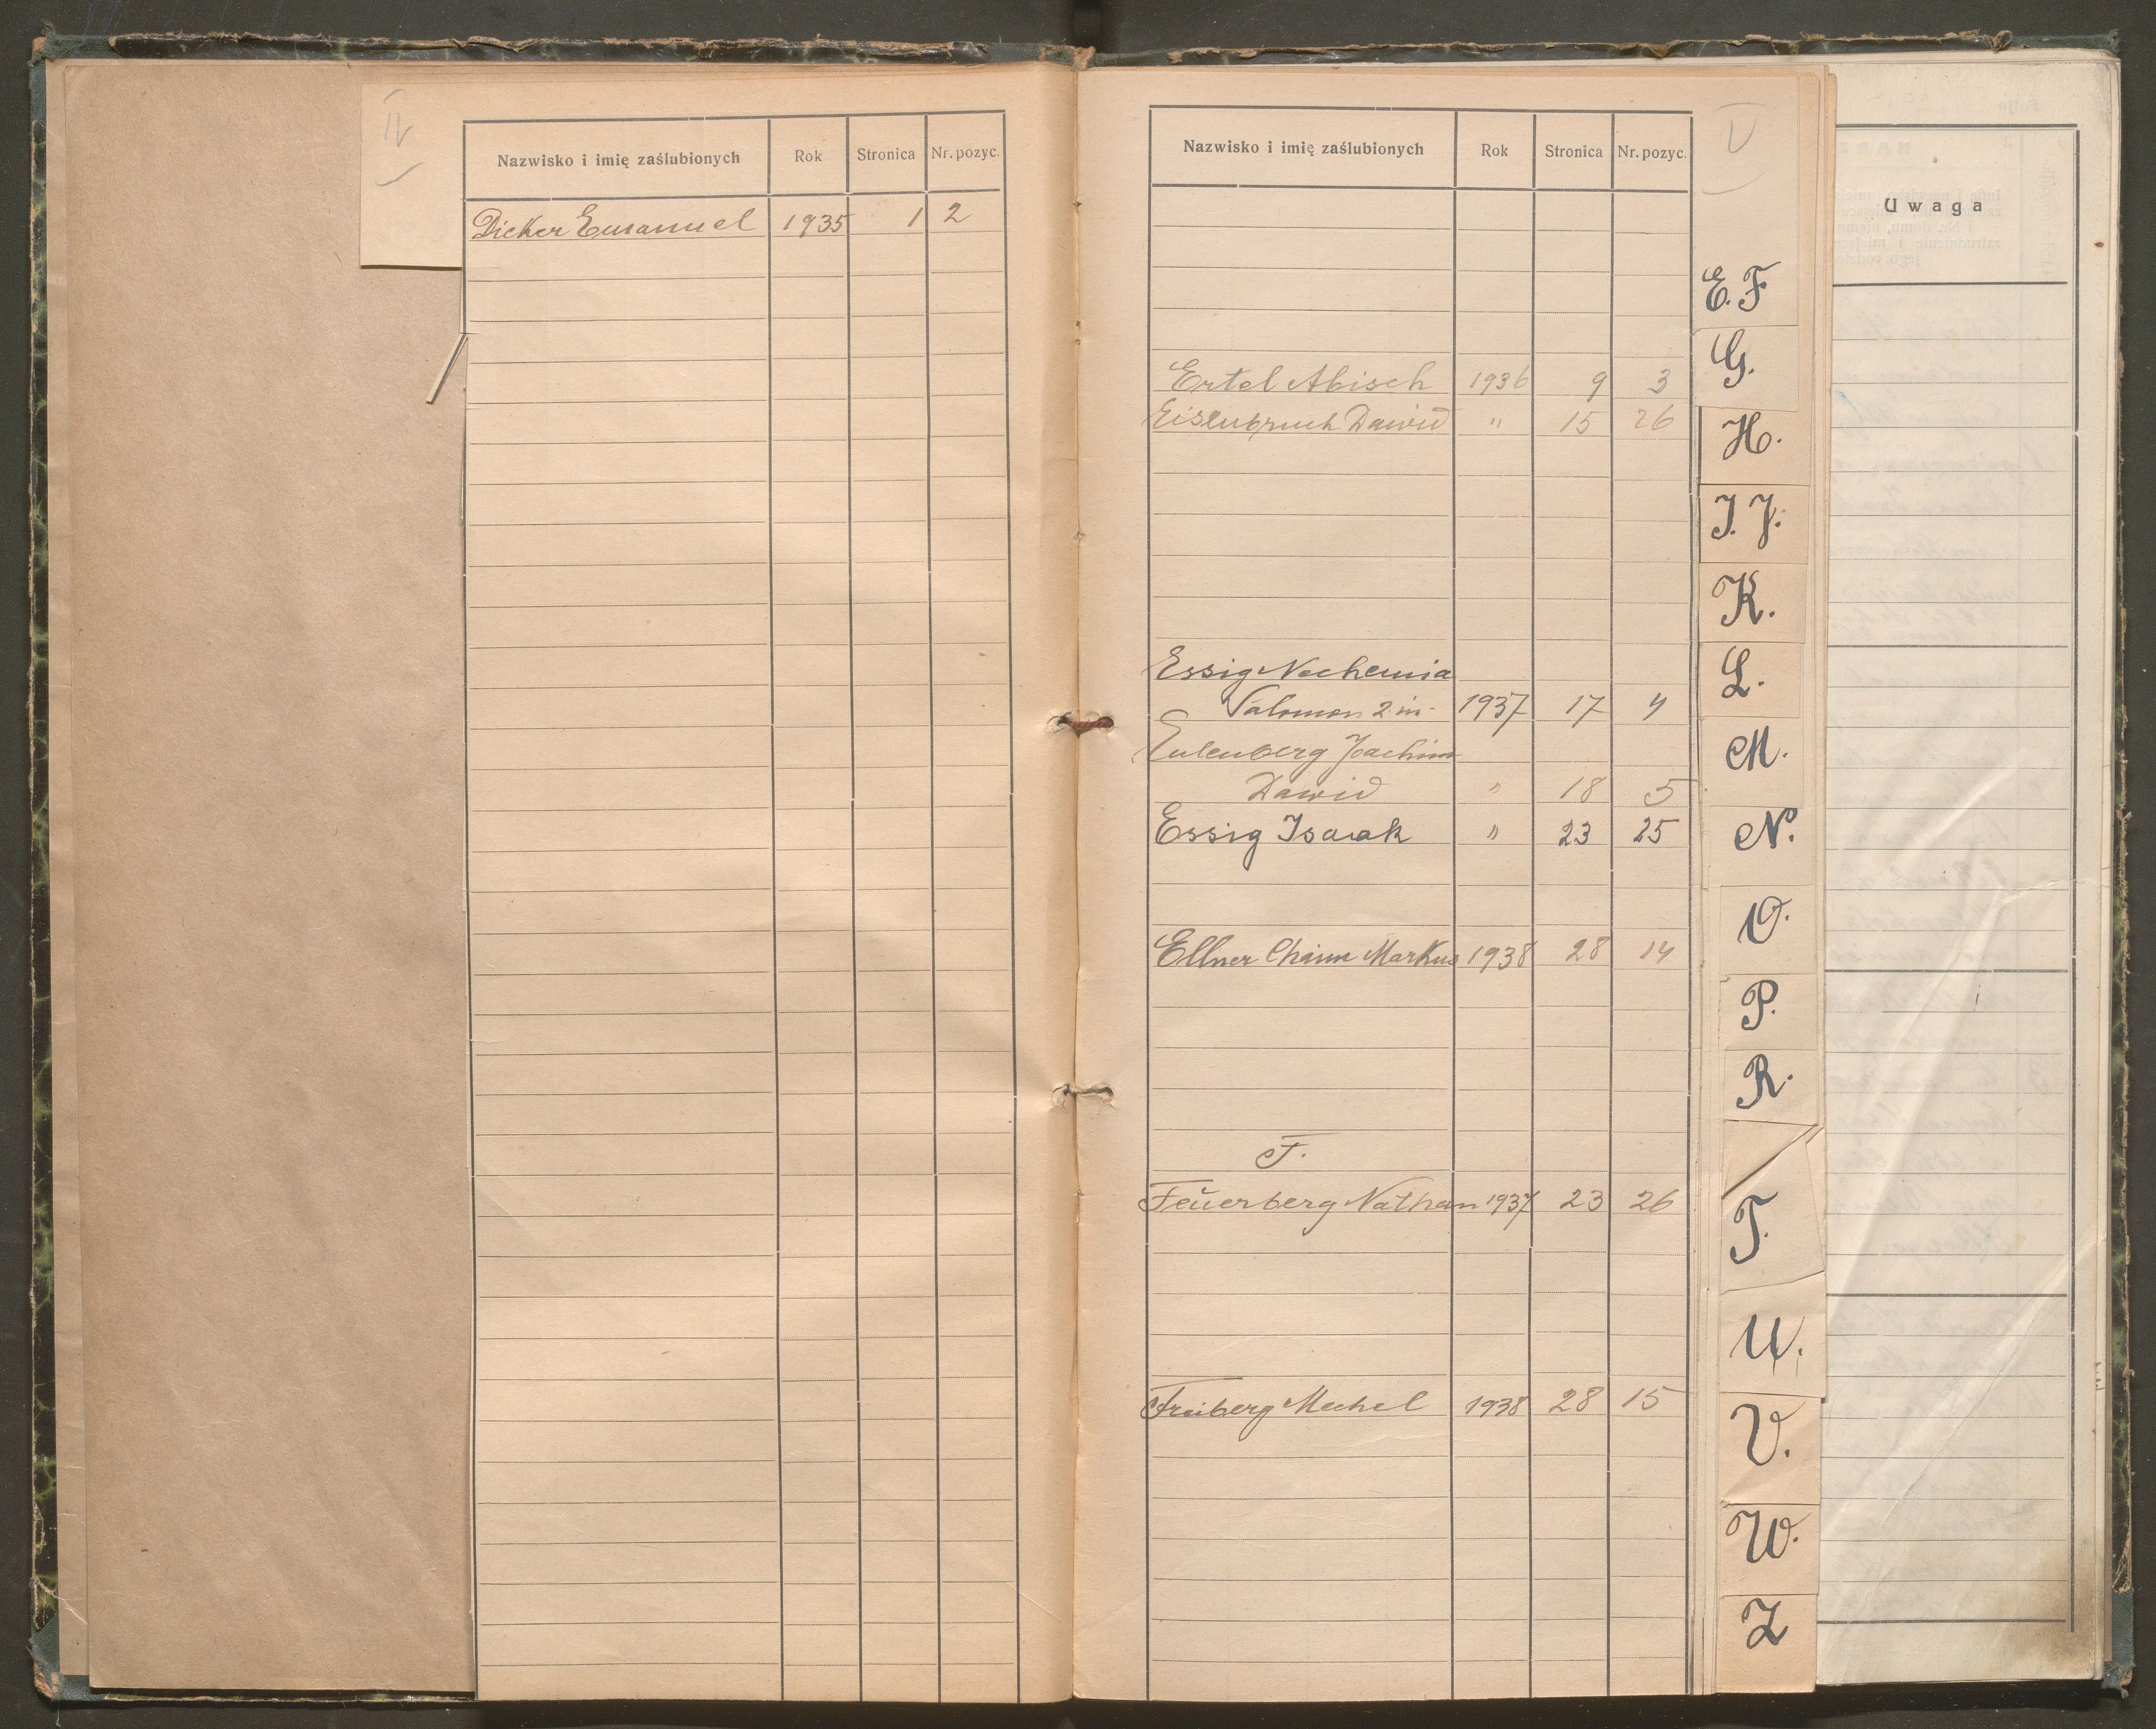 IV
Nazwisko i imię zaślubionych Rok Stronica Nr. pozyc.
Dicker Emanuel 1935 1 2
Nazwisko i imię zaślubionych Rok Stronica Nr. pozyc.
V
Ertel Abisch 1936 9 3
Eisenbruch Dawid " 15 26
Essig Nechemia
Salomon 2 im. 1937 17 4
Eulenberg Joachim
Dawid " 18 5
Essig Isaak " 23 25
Ellner Chaim Markus 1938 28 14
F.
Feuerberg Nathan 1937 23 26
Freiberg Mechel 1938 28 15
E. F
G.
H.
I. J.
K.
L.
M.
N.
O.
P.
R.
T.
U.
V.
W.
Z
Uwaga